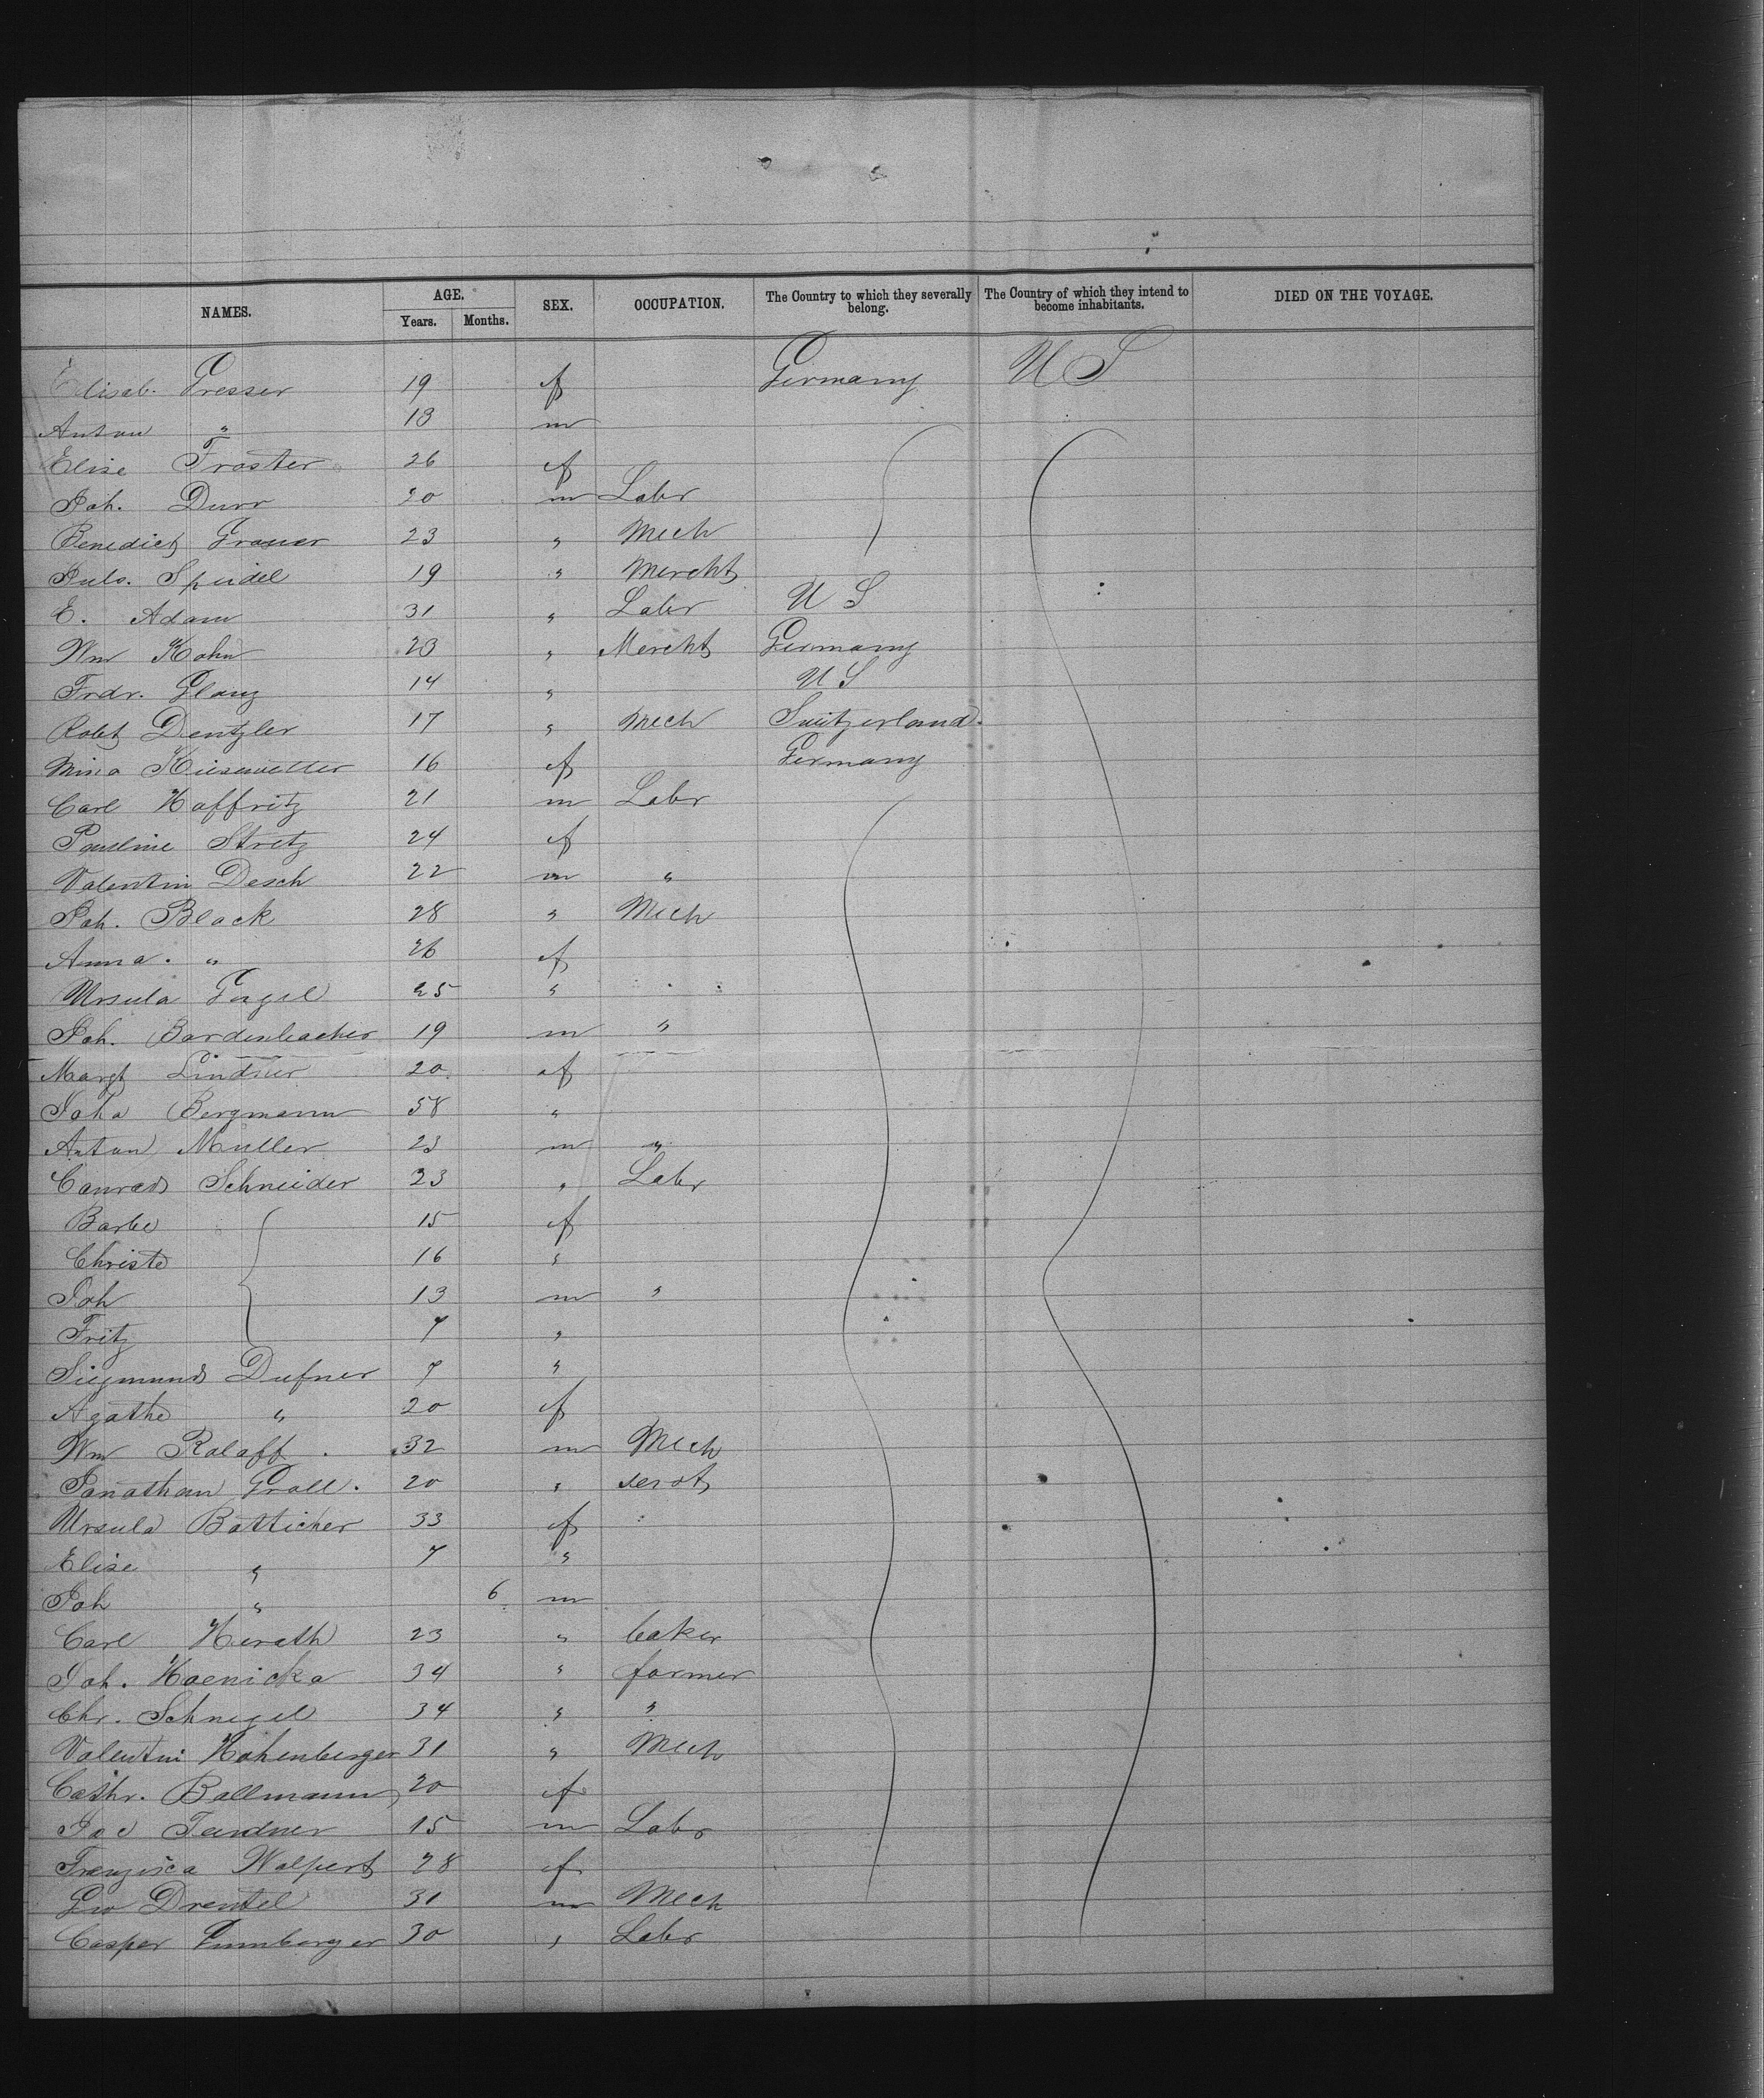 NAMES. AGE. SEX. OCCUPATION. The Country to which they severally belong. The Country of which they intend to become inhabitants. DIED ON THE VOYAGE.
Years. Months.
Elisab. Gresser 19 f Germany U S
Anton " 18 m
Elise Froster 26 f
Joh. Durr 20 m Labr
Benedict Grauer 23 " Mech
Juls. Speidel 19 " Mercht
E. Adam 31 " Labr U S
Wm Kohn 23 " Mercht Germany
Frdr. Glanz 14 " U S
Robt Dentzler 17 " Mech Switzerland
Mina Kiesewetter 16 f Germany
Carl Haffritz 21 m Labr
Pauline Stretz 24 f
Valentin Desch 22 m "
Joh. Black 28 " Mech
Anna. " 26 f
Ursula 25 "
Joh. Bardenbacher 19 m "
Margt Lindner 20 f
Joha Bergmann 58 "
Anton Muller 23 m "
Conrad Schneider 23 " Labr
Barbe 15 f
Christe 16 "
Joh 13 m "
Fritz 7 "
Siegmund Dufner 7 "
Agathe " 20 f
Wm Rolaff 32 m Mech
Jonathan Groll. 20 "
Ursula Batticher 33 f
Elise " 7 "
Joh " 6 m
Carl Herath 23 " baker
Joh. Hoenicka 34 " farmer
Chr. Schnegel 34 " "
Valentin Hohenberger 31 " Mech
Cathr. Ballmann 20 f
Joe 15 m Labr
Franzisca Walpert 28 f
Geo Drentel 31 m Mech
Casper 30 " Labr